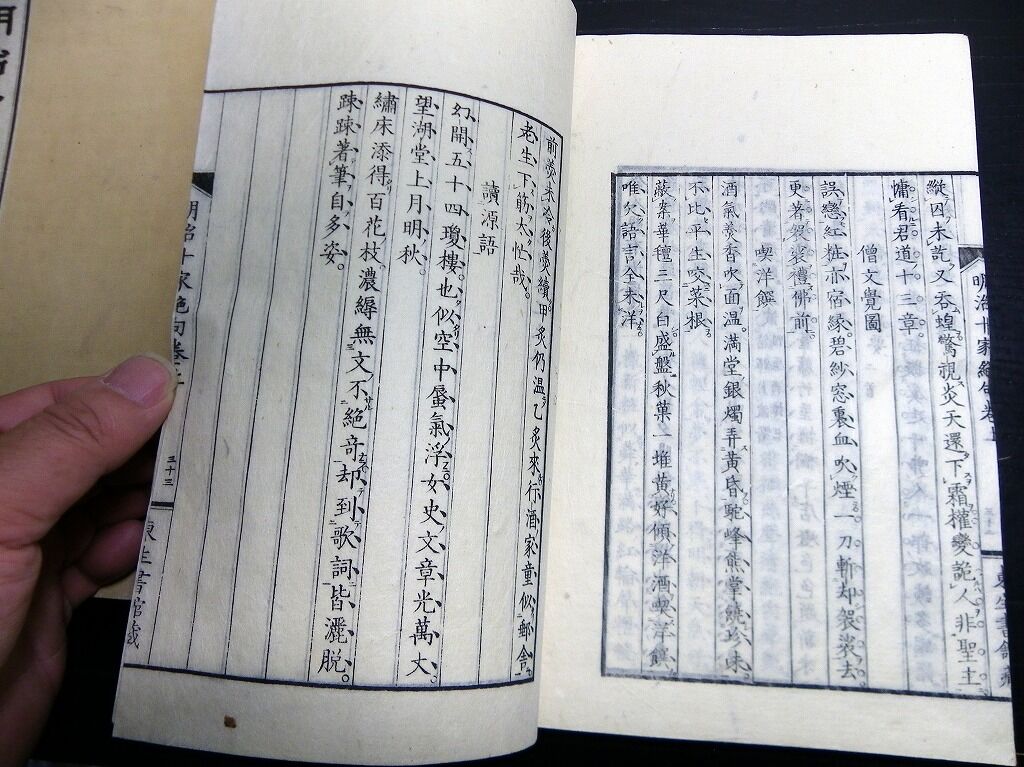 縱囚未訖又吞蝗驚視炎天還下霜權變詭人非聖主
慵看君道十三章
僧文覺圖
誤戀紅粧亦宿緣碧紗窓裏血吹煙一刀斬却袈裟去
更著袈裟禮佛前
喫洋饌
酒氣羮香吹面温滿堂銀燭弄黃昏駝峰熊掌饒珍味
不比平生咬菜根
蔬菜華種三尺白盛盤秋菓一堆黃好傾洋酒喫洋饌
唯欠語言全未洋
明治十家絕句卷上
東生書館藏
前羮未冷後羮續甲炙仍温乙炙來行酒家童似郵舎
老生下筯太忙哉
讀源語
幻開五十四瓊樓也似空中蜃氣浮女史文章光萬丈
望湖堂上月明秋
繡床添得百花枝濃縟無文不絕奇却到歌詞皆灑脫
疎疎著筆自多姿
明治十家絕句卷上
三十三
東生書館藏